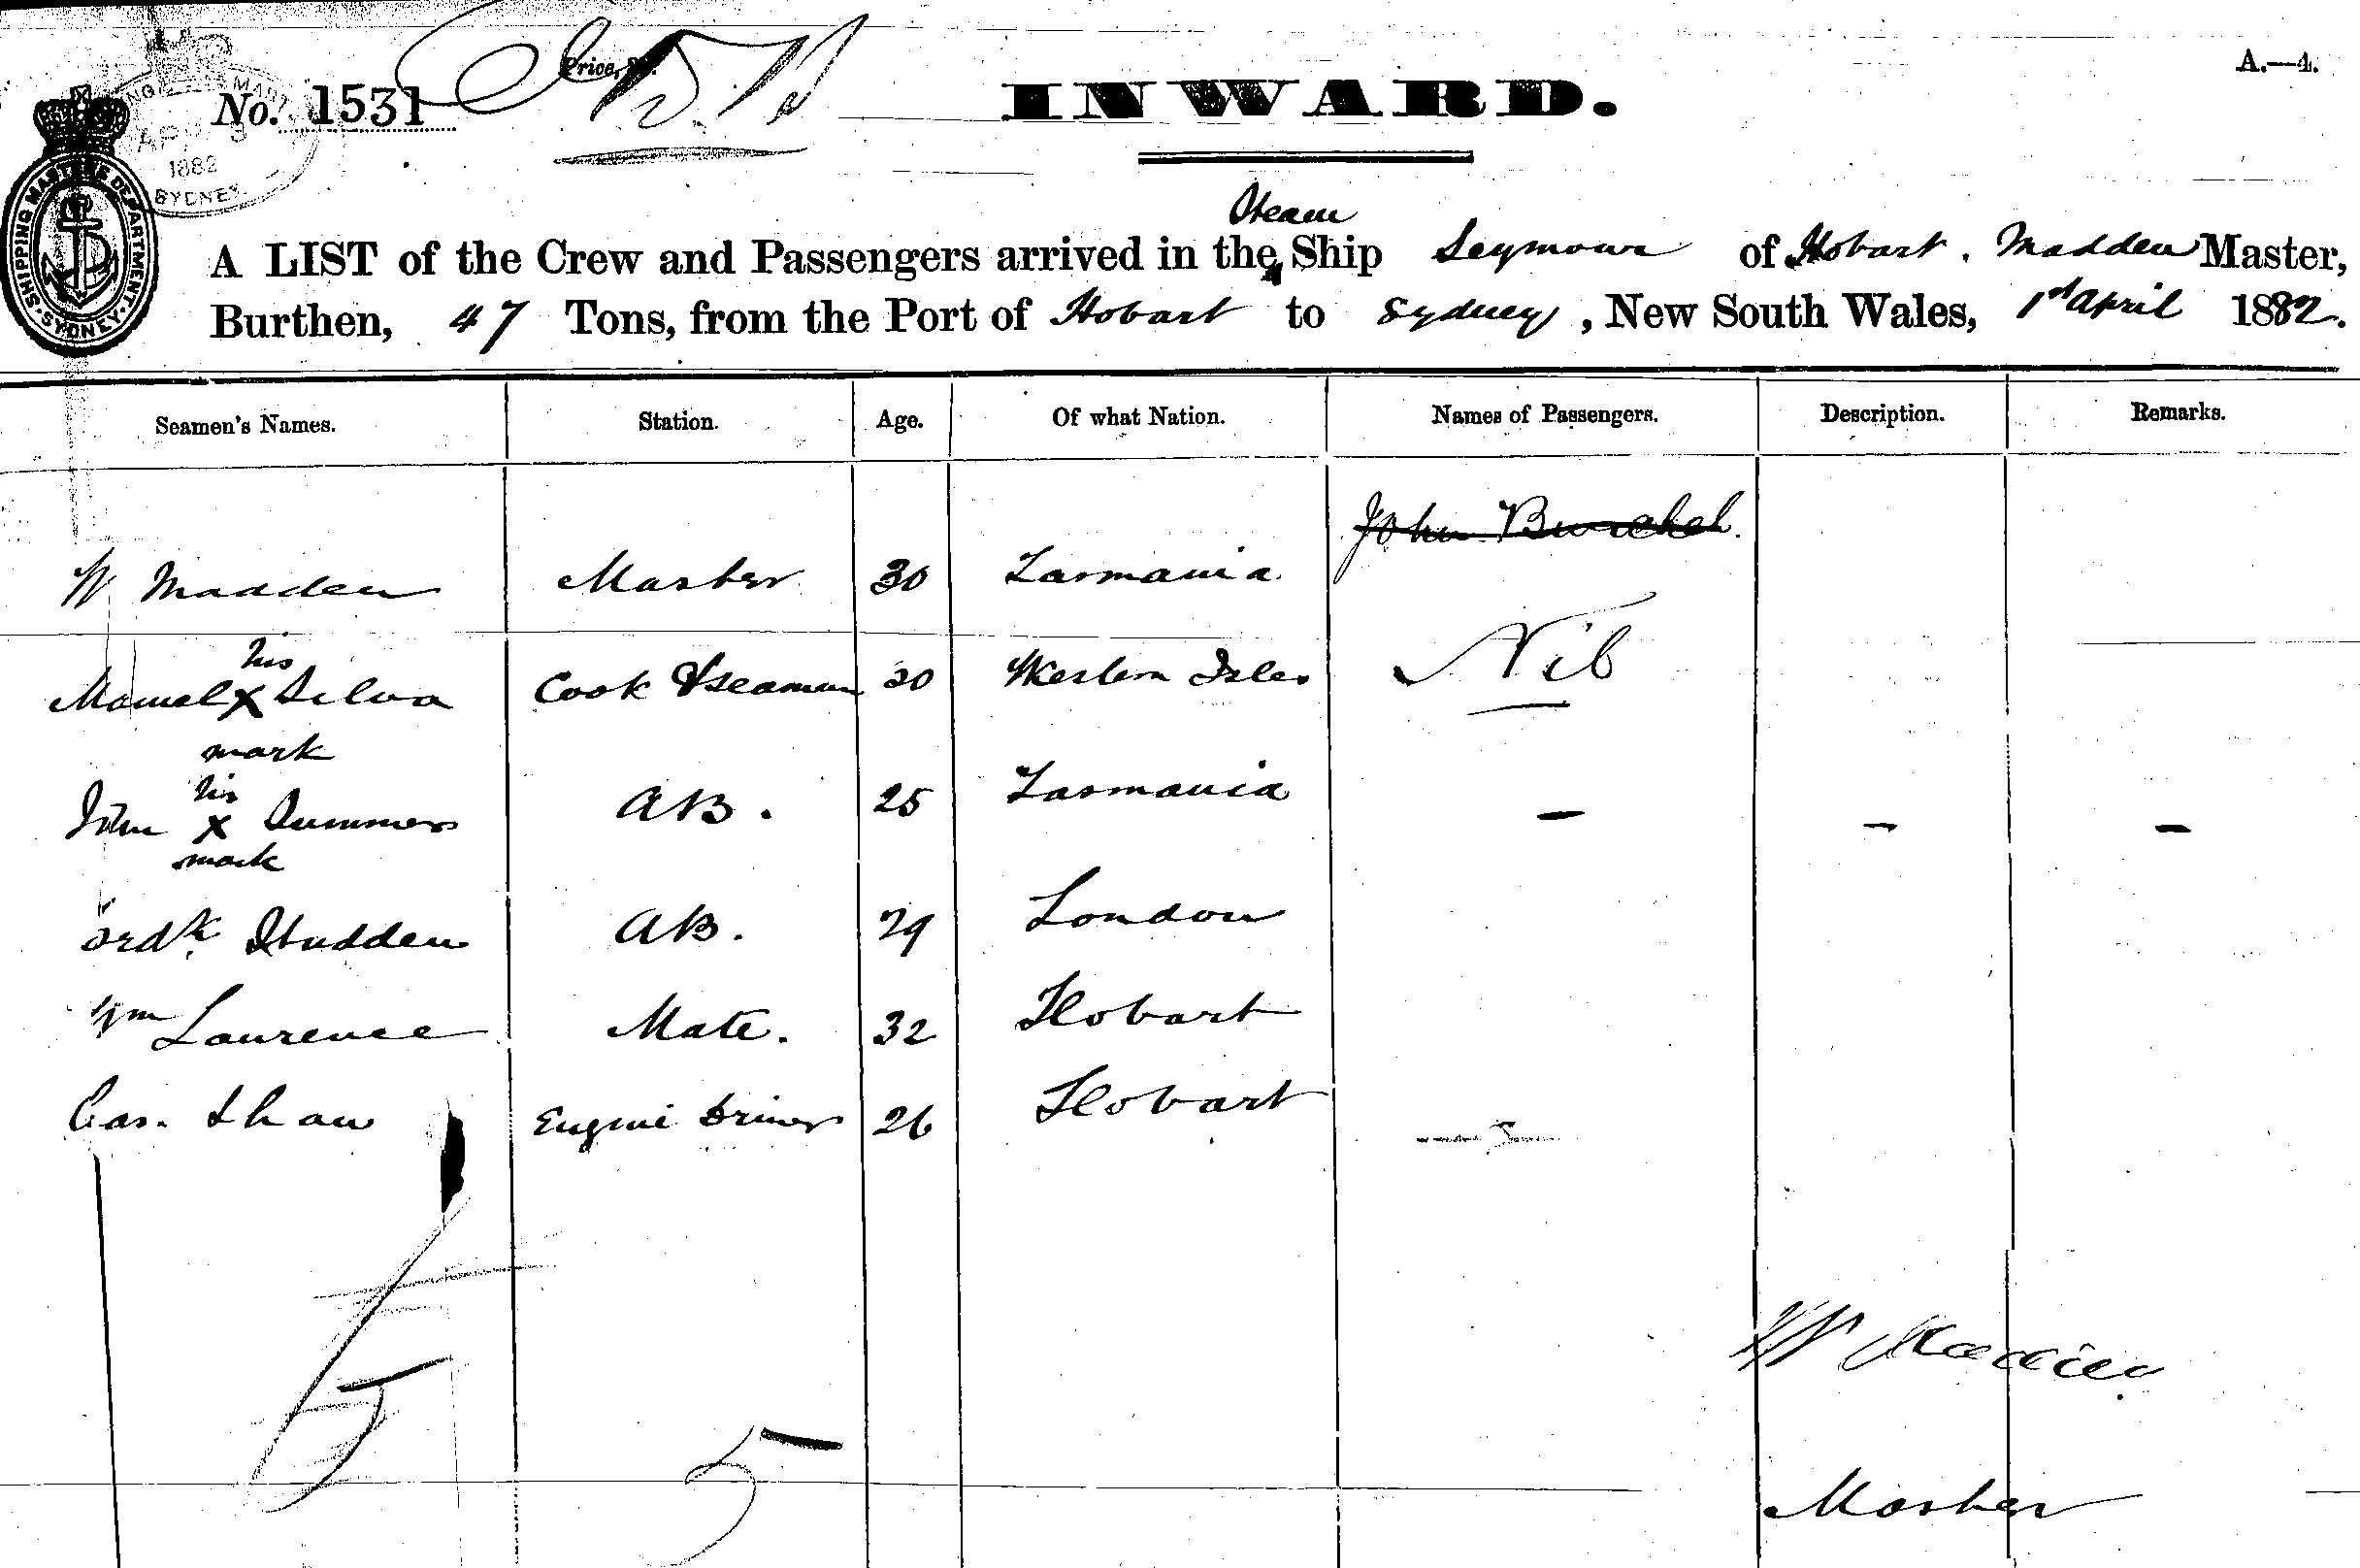 A.—4.
No. 1531
INWARD.
APR 3
1882
SYDNEY
SHIPPING MASTER'S DEPARTMENT
SYDNEY
Steam
A LIST of the Crew and Passengers arrived in the Ship Seymour of Hobart. Madden Master,
Burthen, 47 Tons, from the Port of Hobart to Sydney, New South Wales, 1st April 1882.
Seamen's Names. Station. Age. Of what Nation. Names of Passengers. Description. Remarks.
John
W Madden Master 30 Tasmania
his
Manuel X Silva Cook & Seaman Western Isles Nil
mark
his
John X Summers AB. 25 Tasmania — — —
mark
Fredk. Studden AB. 29 London
Wm Laurence Mate. 32 Hobart
Cas. Shaw Engine Driver 26 Hobart
W Madden
5
5
Master